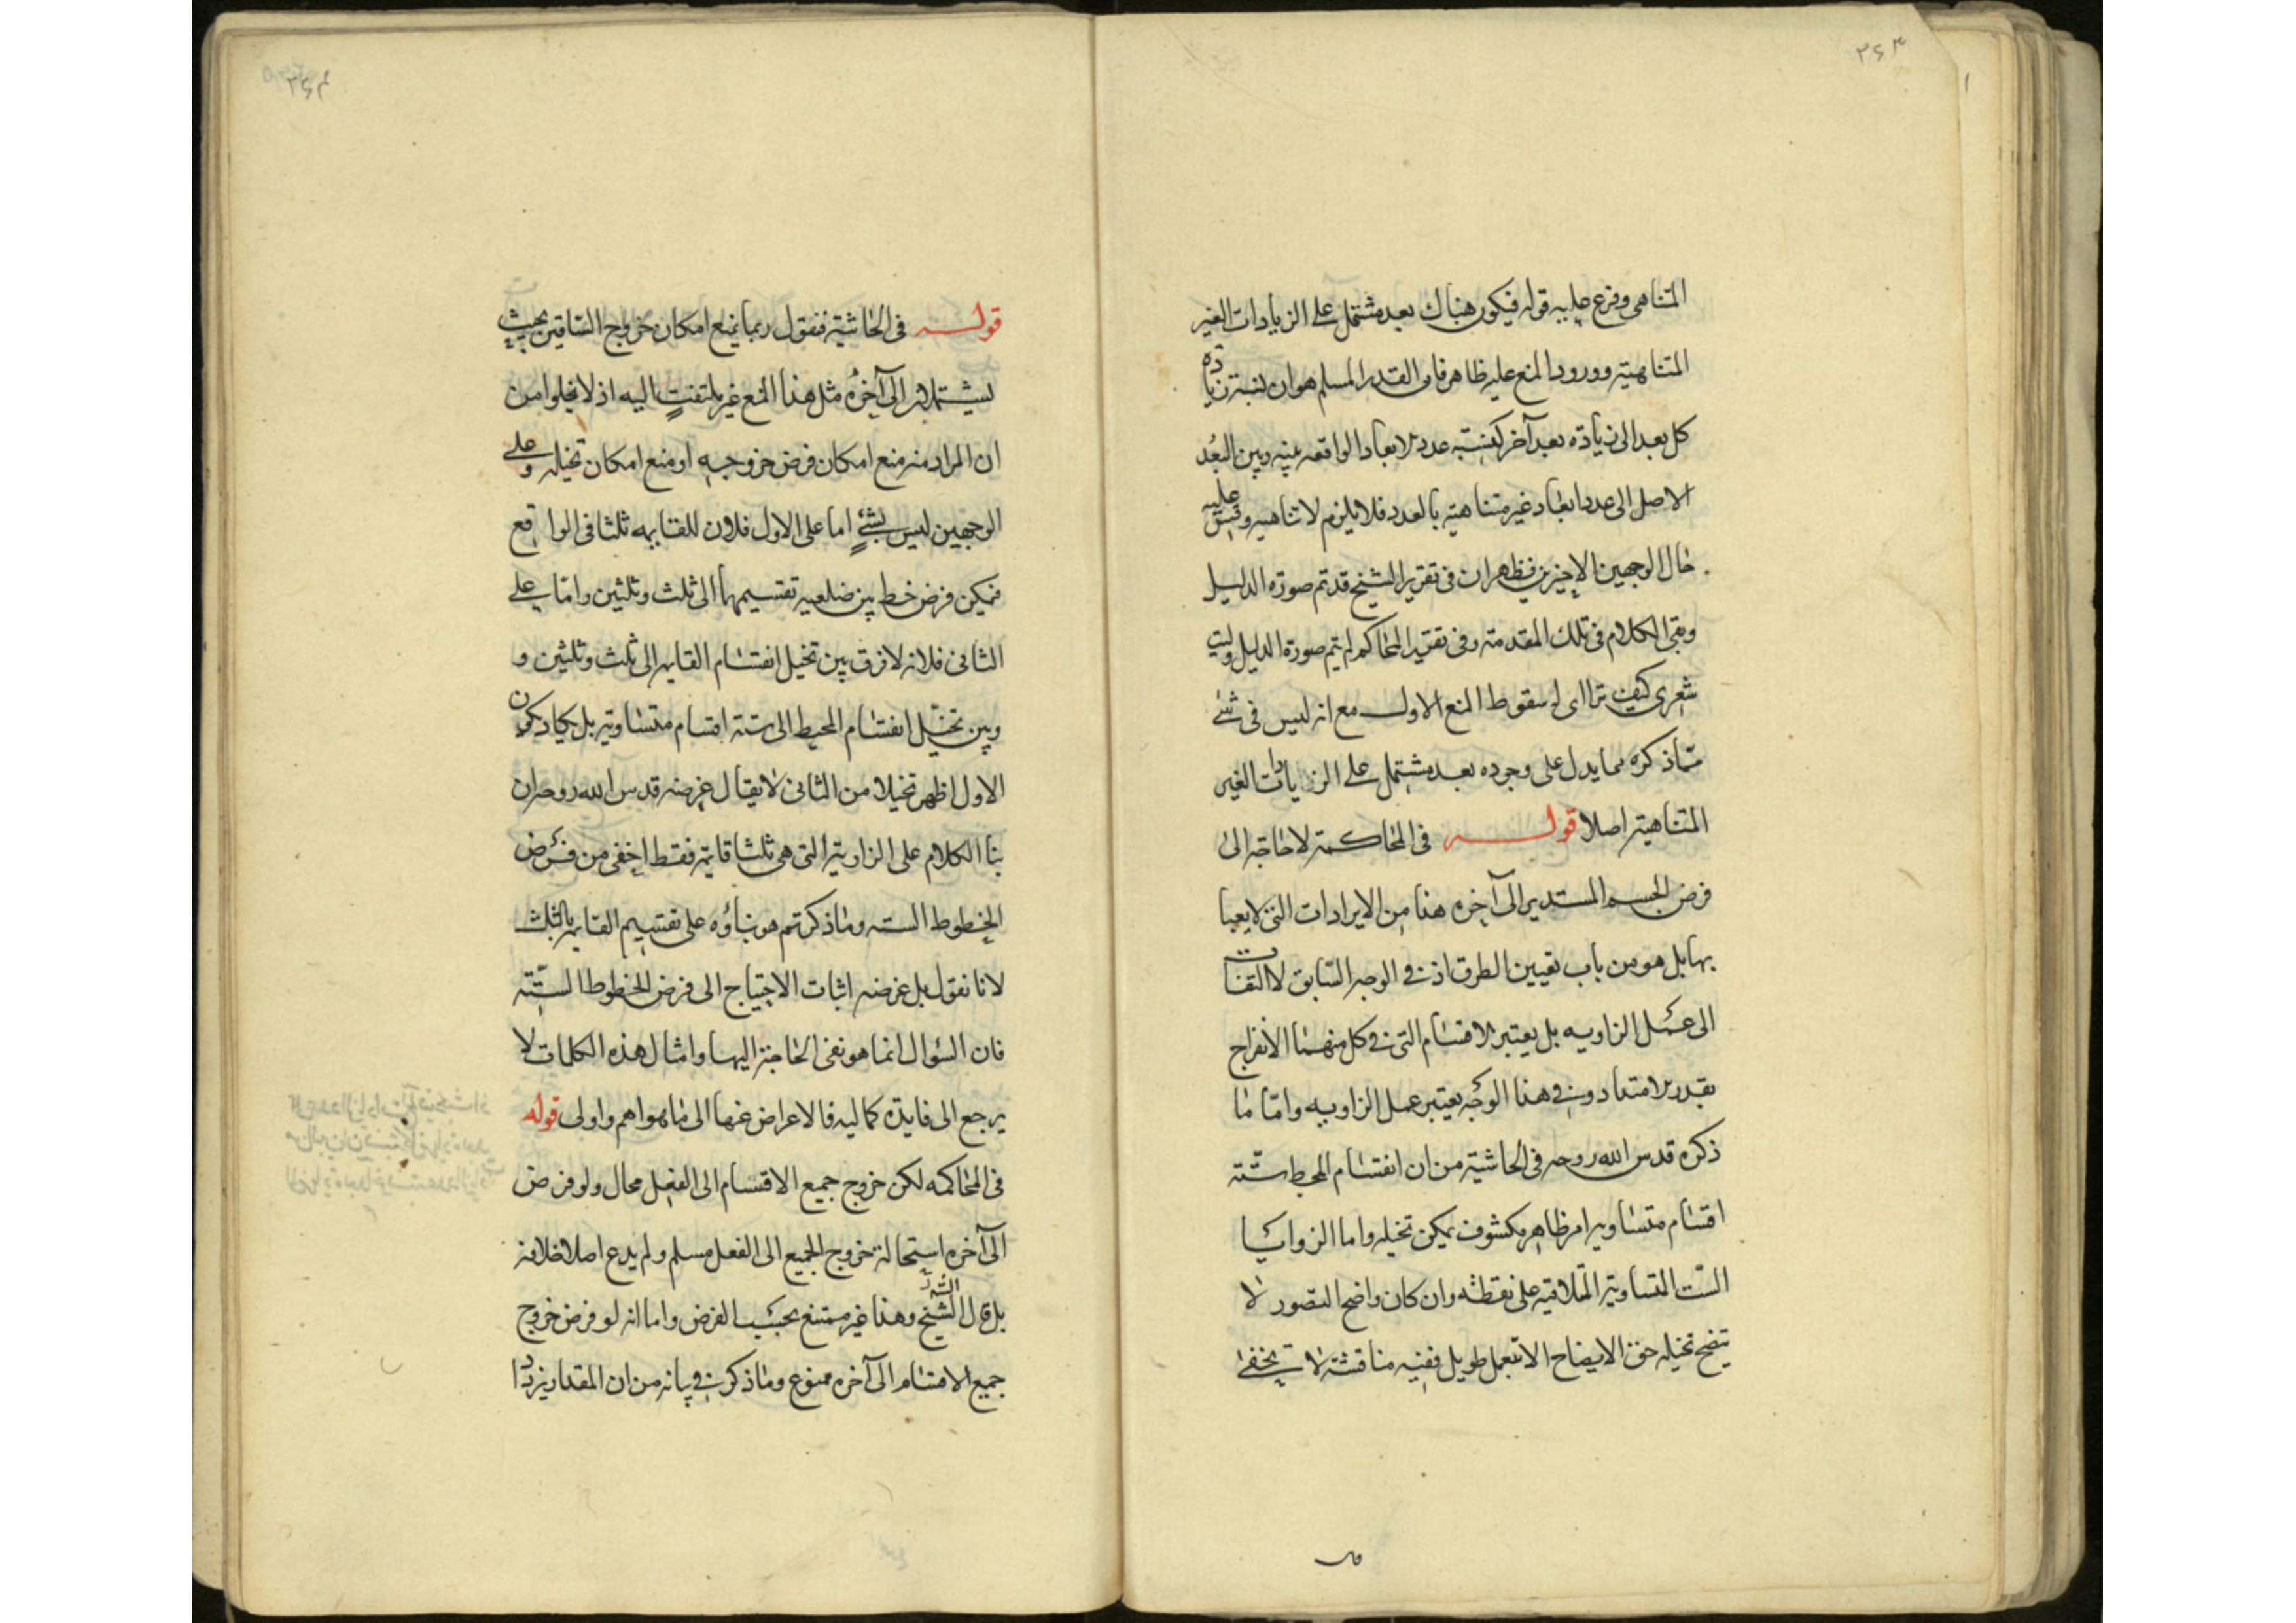 ۲۶۳
المتناهى وفرع عليه قوله فيكون هناك بعد مشتمل على الزيادات الغير
المتناهية وورود المنع عليه ظاهر فان القدر المسلم هو ان نسبة زيادة
كل بعد الى زيادة بعد آخر كنسبة عدد الابعاد الواقعه بينه وبين البُعد
الاصل الى عدد ابعاد غير متناهية بالعدد فلا يلزم لا تناهيه وقس عليه
حال الوجهين الاخيرين فظهر ان فى تقرير الشيخ قد تم صورة الدليل
وبقى الكلام فى تلك المقدمة وفى تقرير المحاكم لم يتم صورة الدليل وليت
شعرى كيف ترااى له سقوط المنع الاول مع انه ليس فى شئ
مما ذكره مما يدل على وجوده بعد مشتمل على الزيادات الغير
المتناهية اصلا قوله فى المحاكمة لا حاجة الى
فرض الجسم المستدير الى آخره هذا من الايرادات التى لا يعبا
بها بل هو من باب تعيين الطرق اذ فى الوجه السابق لا التفات
الى عمل الزاويه بل يعتبر الاقسام التى فى كل منهما الانفراج
بقدر الامتداد وفى هذا الوجه يعتبر عمل الزاويه واما ما
ذكره قدس الله روحه فى الحاشية من ان انقسام المحيط ستة
اقسام متساوية امر ظاهر مكشوف يمكن تخيله واما الزوايا
الست المتساوية المتلاقيه على نقطه وان كان واضح التصور لا
يتضح تخيله حق الايضاح الا بتعمل طويل ففيه مناقشة لا تخفى
قوله فى الحاشية فنقول ربما يمنع امكان خروج الساقين بحيث
الى آخره مثل هذا المنع غير ملتفتٍ اليه اذ لا يخلوا من
ان المراد منه منع امكان فرض خروجه او منع امكان تخيله وعلى
الوجهين ليس بشئٍ اما على الاول فلان للقايمه ثلثا فى الواقع
فيمكن فرض خط بين ضلعيه تقسيمها الى ثلث وثلثين واما على
الثانى فلانه لا فرق بين تخيل انقسام القايمه الى ثلث وثلثين و
وبين تخيّل انقسام المحيط الى ستة اقسام متساوية بل يكاد يكون
الاول اظهر تخيلا من الثانى لا يقال غرضه قدس الله روحه ان
بنا الكلام على الزاوية التى هى ثلثا قايمة فقط اخفى من فرض
الخطوط الستة وما ذكرتم هو بناؤه على تقسيم القايمه بالثلث
لانا نقول بل غرضه اثبات الاحتياج الى فرض الخطوط الستّة
فان السؤال انما هو نفى الحاجة اليها وامثال هذه الكلمات لا
يرجع الى فايدة كماليه فالاعراض عنها الى ما هو اهم واولى قوله
فى المحاكمه لكن خروج جميع الاقسام الى الفعل محال ولو فرض
الى آخره استحالة خروج الجميع الى الفعل مسلم ولم يدع اصلا خلافه
بل قال الشيخ وهذا غير ممتنع بحسب الفرض واما انه لو فرض خروج
جميع الاقسام الى آخره ممنوع وما ذكر فى بيانه من ان المقدار يزداد